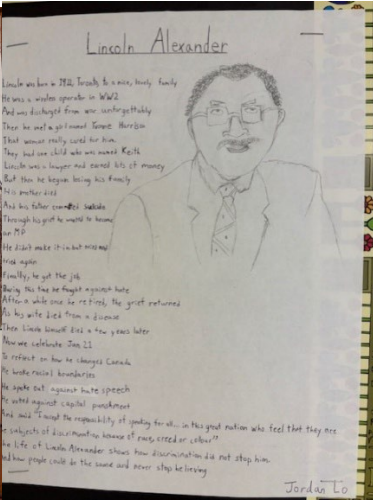 Lincoln Alexander
Lincoln was born in 1922, Toronto, to a nice, lovely family
He was a wireless operator in WW2
And was discharged from war, unforgettably
Then he met a girl named Yvonne Harrison
That woman really cared for him
They had one child who was named Keith
Lincoln was a lawyer and earned lots of money
But then he began losing his family
His mother died
And his father commited suicide
Through his grief he wanted to become
an MP
He didn't make it in but
tried again
Finally, he got the job
During this time he fought against hate
After a while once he retired, the grief returned
As his wife died from a disease
Then Lincoln himself died a few years later
Now we celebrate Jan 21
To reflect on how he changed Canada
He broke racial boundaries
He spoke out against hate speech
He voted against capital punishment
And said "I accept the responsibility of speaking for all... in this great nation who feel that they are
the subjects of discrimination because of race, creed or colour"
The life of Lincoln Alexander shows how discrimination did not stop him
And how people could do the same and never stop believing
Jordan Lo